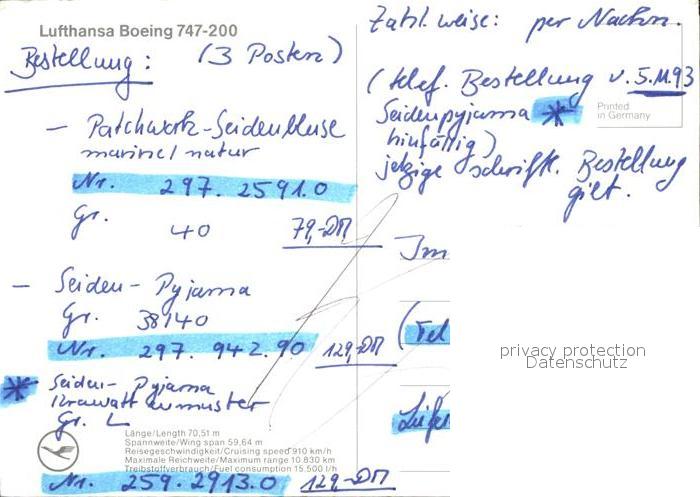 Lufthansa Boeing 747-200
Bestellung: (3 Posten)
- Patchwork-Seidenbluse
marine/natur
Nr. 297. 2591.0
Gr. 40 79,-DM
- Seiden-Pyjama
Gr. 38/40
Nr. 297. 942. 90 129,-DM
* Seiden-Pyjama
Krawattenmuster
Gr. L
Länge/Length 70,51 m
Spannweite/Wing span 59,64 m
Reisegeschwindigkeit/Cruising speed 910 km/h
Maximale Reichweite/Maximum range 10.830 km
Treibstoffverbrauch/Fuel consumption 15.500 l/h
Nr. 259. 2913.0 129,-DM
Zahlweise: per Nachn.
(telef. Bestellung v. 5.11.93
Seidenpyjama *
hinfällig)
jetzige schriftl. Bestellung
gilt.
Printed
in Germany
Im
(Tel
Liefer
privacy protection
Datenschutz